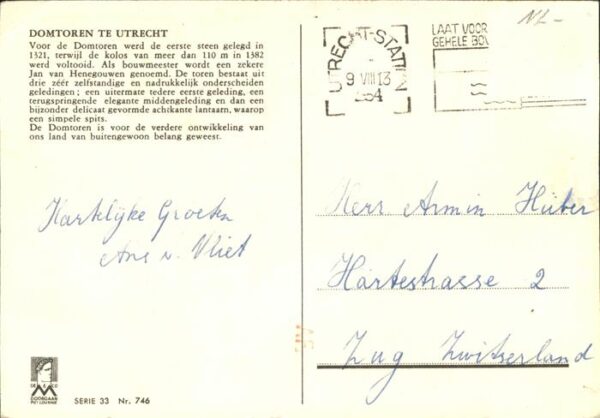 DOMTOREN TE UTRECHT
Voor de Domtoren werd de eerste steen gelegd in
1321, terwijl de kolos van meer dan 110 m in 1382
werd voltooid. Als bouwmeester wordt een zekere
Jan van Henegouwen genoemd. De toren bestaat uit
drie zéér zelfstandige en nadrukkelijk onderscheiden
geledingen; een uitermate tedere eerste geleding, een
terugspringende elegante middengeleding en dan een
bijzonder delicaat gevormde achtkante lantaarn, waarop
een simpele spits.
De Domtoren is voor de verdere ontwikkeling van
ons land van buitengewoon belang geweest.
Hartelijke Groeten
Ans v. Vliet
SERIE 33 Nr. 746
NL-
UTRECHT-STATION
9 VIII 13
LAAT VOOR
GEHELE BOV
Herr Armin Huber
Hartestrasse 2
Zug Zwitserland